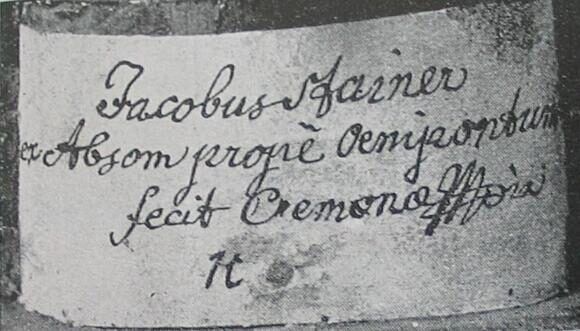 Jacobus Stainer
ex Absom propè Oenipontum
fecit Cremona